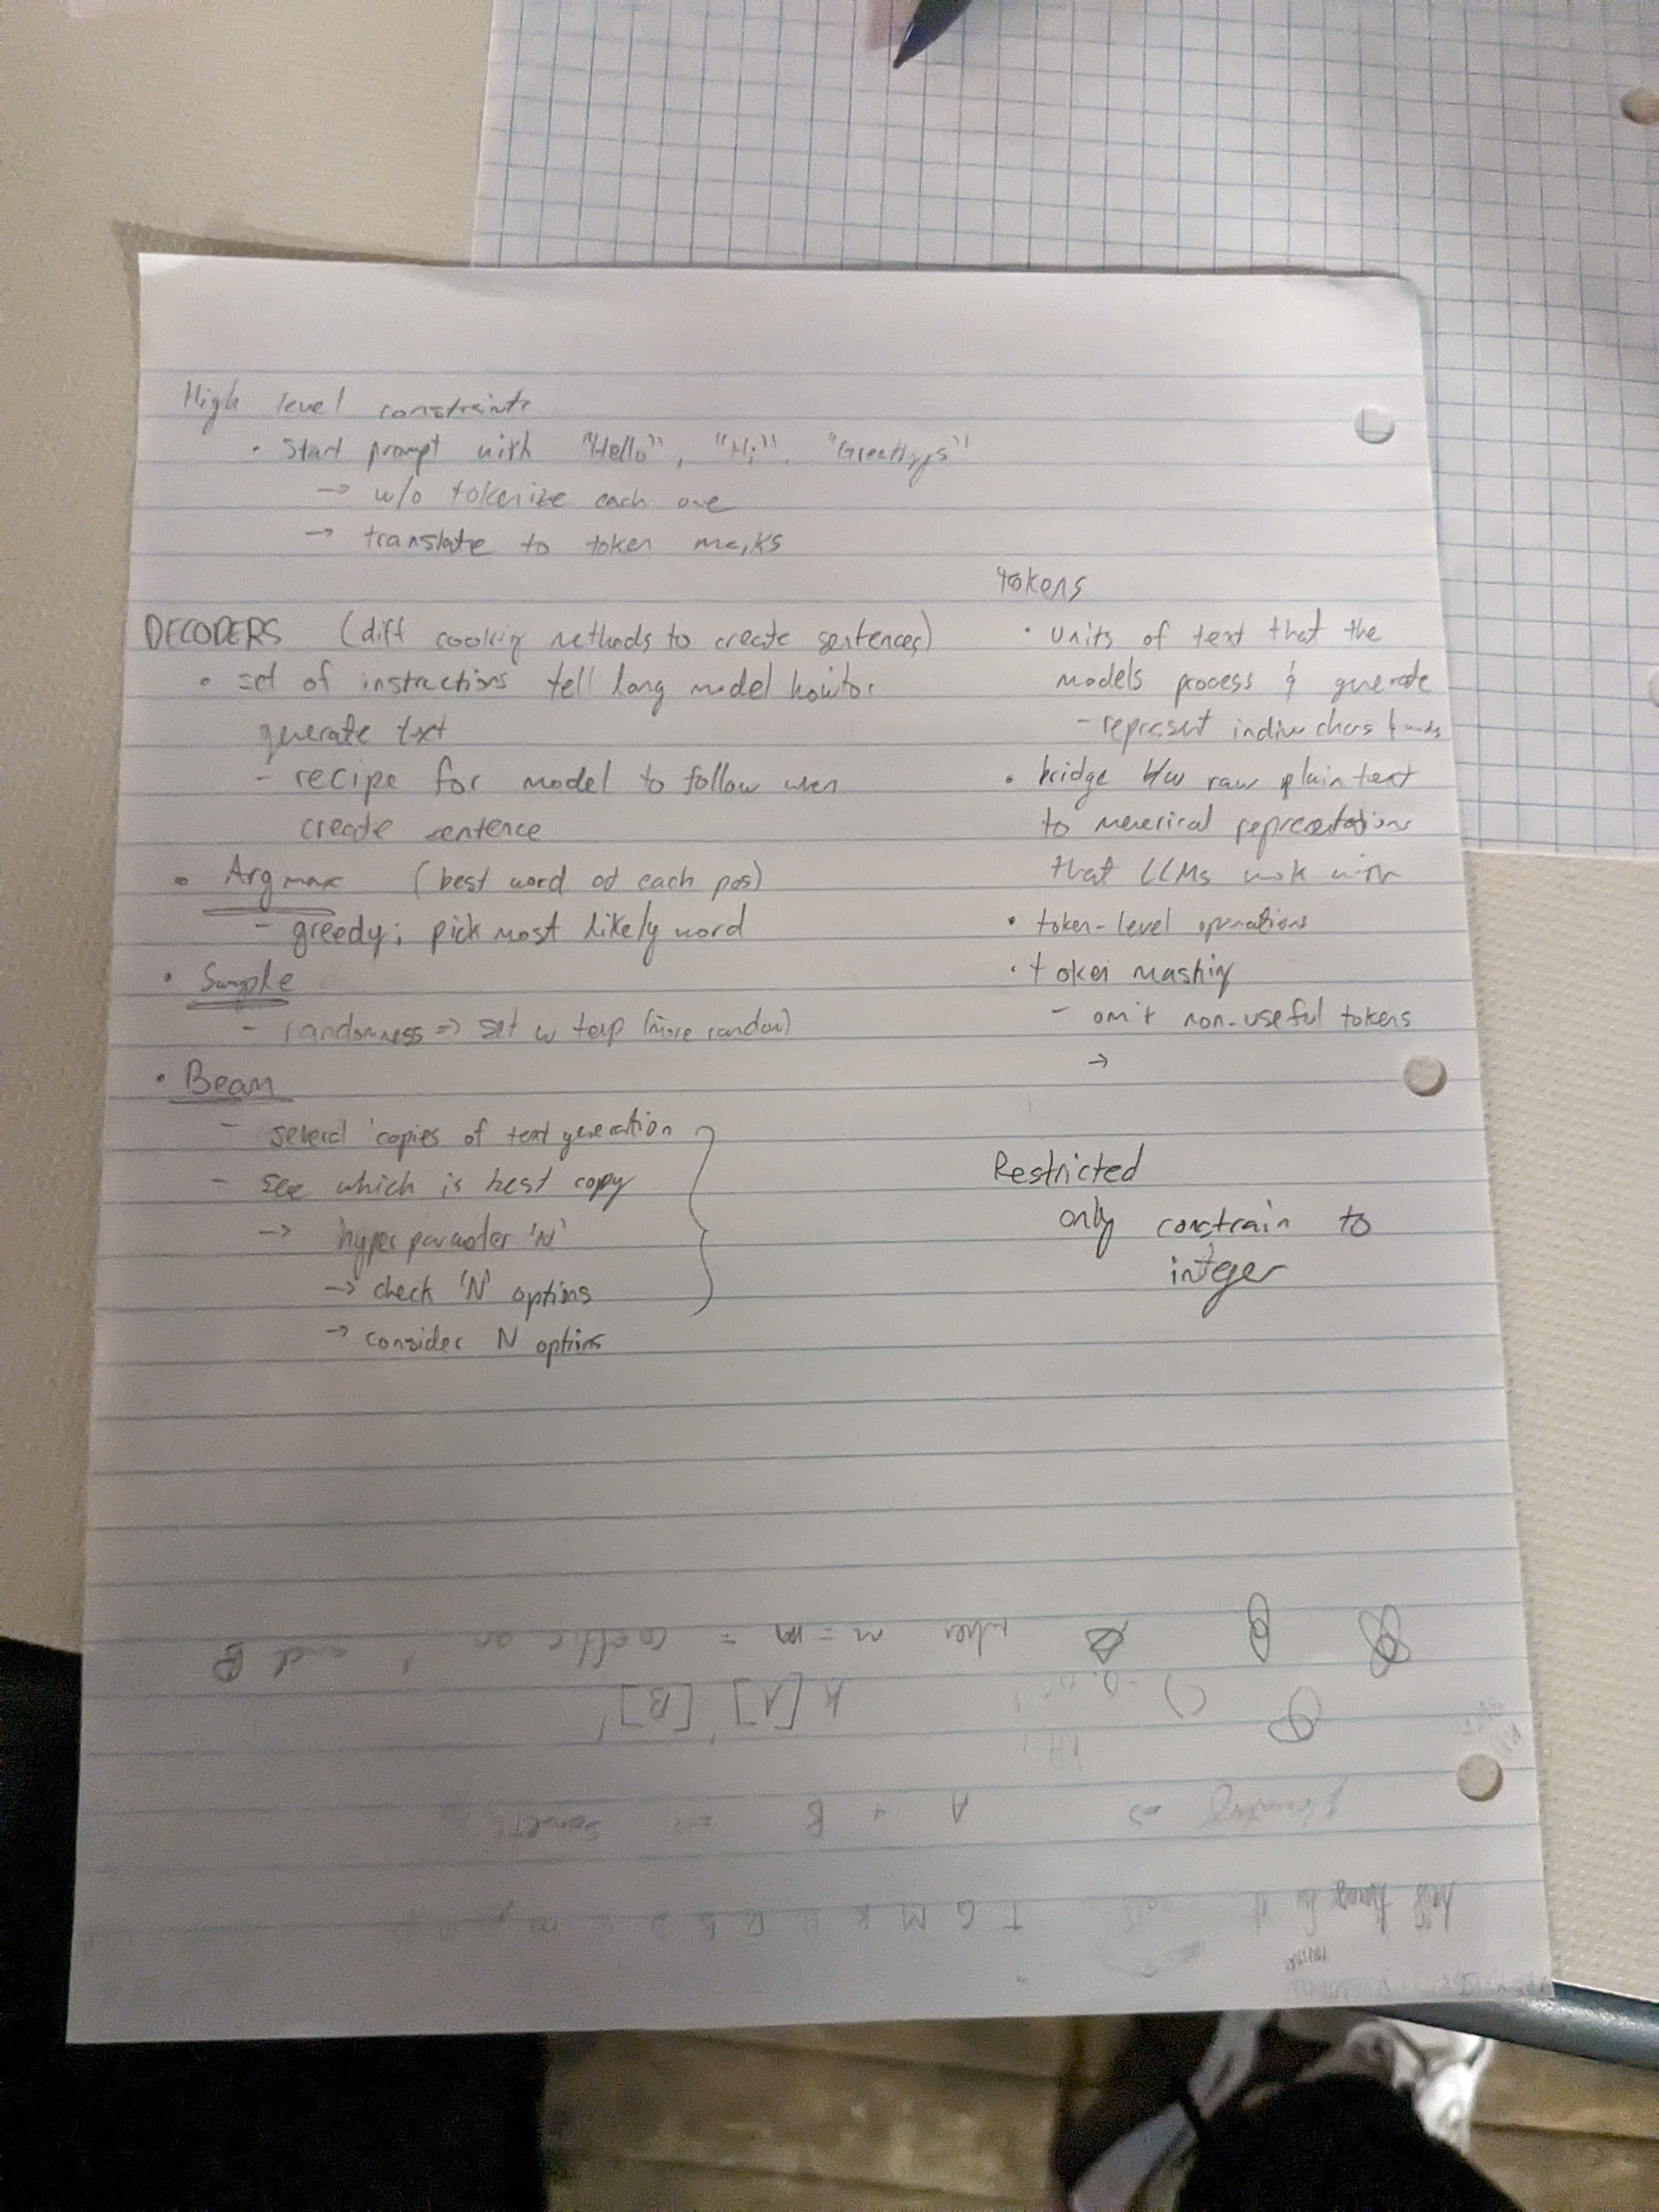 High level constraints
• Start prompt with "Hello", "Hi", "Greetings"
→ w/o tokenize each one
→ translate to token masks
DECODERS (diff cooking methods to create sentences)
• set of instructions tell lang model how to
generate text
- recipe for model to follow wen
create sentence
• Arg max (best word at each pos)
- greedy; pick most likely word
• Sample
- randomness => set w temp (more random)
• Beam
- several copies of text generation
- see which is best copy
→ hyper parameter 'N'
→ check 'N' options
→ consider N options
tokens
• units of text that the
models process & generate
- represent indiv chars &
• bridge b/w raw plain text
to numerical representations
that LLMs work with
• token-level operations
• token masking
- omit non-useful tokens
→
Restricted
only constrain to
integer
when m = m = coeffic on
k [A] [B]
A + B